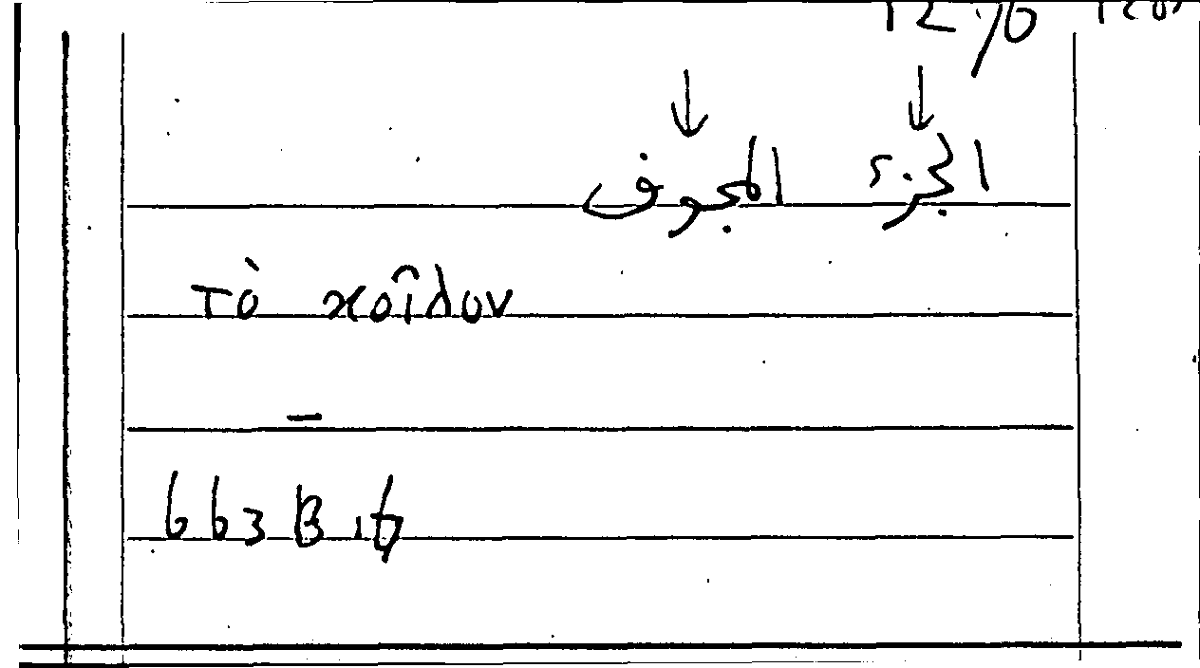 ↓ ↓
الجزء المجوف
τὸ κοῖλον
–
663 B 16